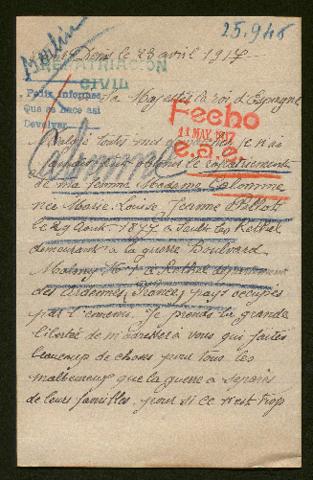 25.946
Berlin
St Denis le 23 avril 1917
REPATRIACION
CIVIL
Pedir informes
Que se hace así
Devolver
a sa Majesté le roi d'Espagne
Fecho
11 MAY. 1917
Malgré toutes mes je n'ai
obtenir le rapatriement
Calomne
de ma femme Madame Calomne
née Marie Louise Jeanne
le 29 Août 1877 à Sault les Rethel
demeurant à la guerre Boulevard
à Rethel département
des Ardennes, France, pays occupés
par l'ennemi. Je prends la grande
liberté de m'adresser à vous qui faites
beaucoup de choses pour tous les
malheureux que la guerre a séparés
de leurs familles, pour si ce n'est trop